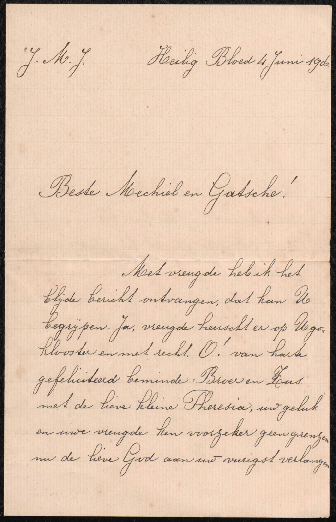 J. M. J. Heilig Bloed 4 Juni 19
Beste Mechiel en Gatsche!
Met vreugde heb ik het
blijde bericht ontvangen, dat kan U
begrijpen. Ja, vreugde heerscht er op Ugo-
klooster en met recht. O! van harte
gefeliciteerd beminde Broer en Zus
met de lieve kleine Theresia, uw geluk
en uwe vreugde ken voorzeker geen grenzen
nu de lieve God aan uw vurigst verlangen